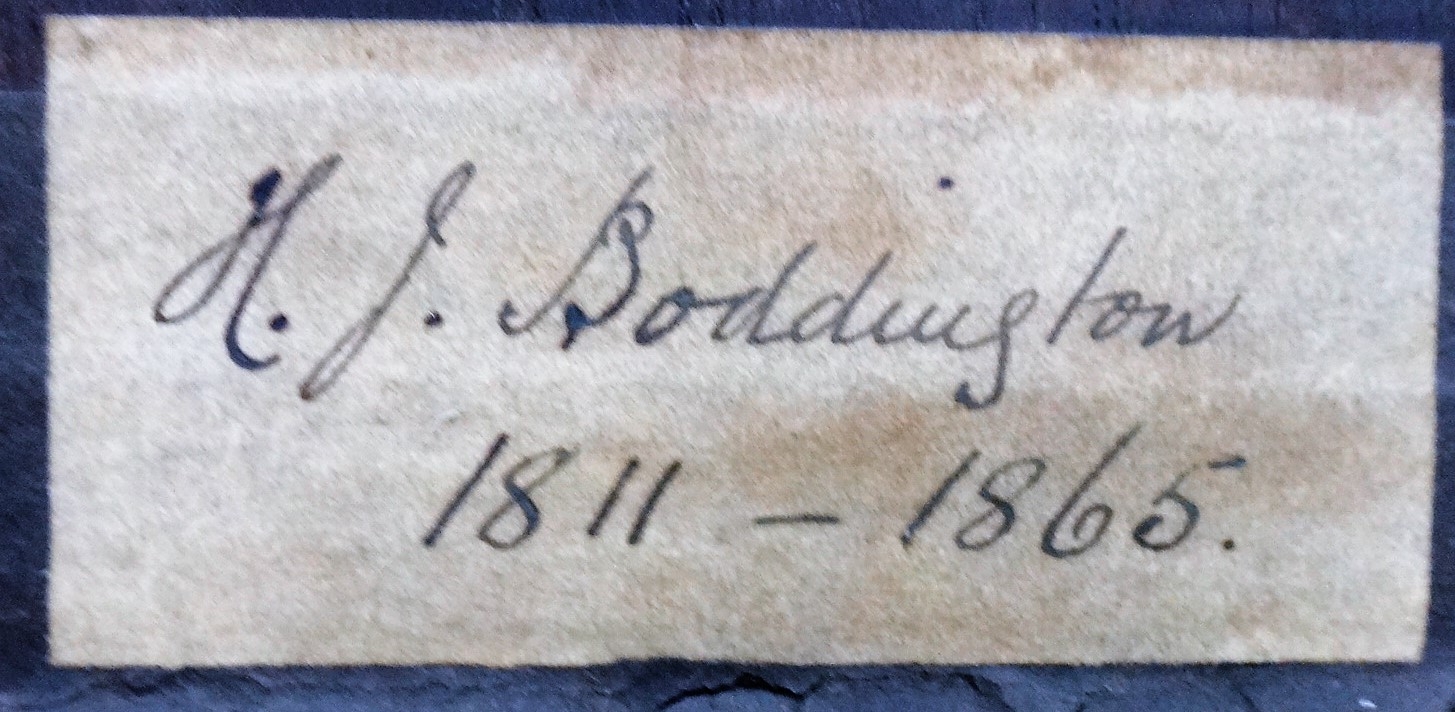 H. J. Boddington
1811 – 1865.